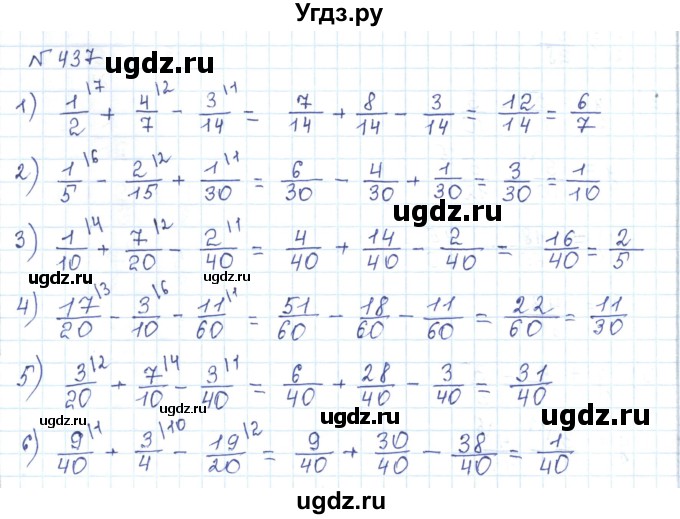 Угдз.ру
№ 437
ugdz.ru
1) 1/2 |7 + 4/7 |2 - 3/14 |1 = 7/14 + 8/14 - 3/14 = 12/14 = 6/7
2) 1/5 |6 - 2/15 |2 + 1/30 |1 = 6/30 - 4/30 + 1/30 = 3/30 = 1/10
ugdz.ru
3) 1/10 |4 + 7/20 |2 - 2/40 |1 = 4/40 + 14/40 - 2/40 = 16/40 = 2/5
ugdz.ru ugdz.ru
4) 17/20 |3 - 3/10 |6 - 11/60 |1 = 51/60 - 18/60 - 11/60 = 22/60 = 11/30
5) 3/20 |2 + 7/10 |4 - 3/40 |1 = 6/40 + 28/40 - 3/40 = 31/40
ugdz.ru ugdz.ru
6) 9/40 |1 + 3/4 |10 - 19/20 |2 = 9/40 + 30/40 - 38/40 = 1/40
ugdz.ru